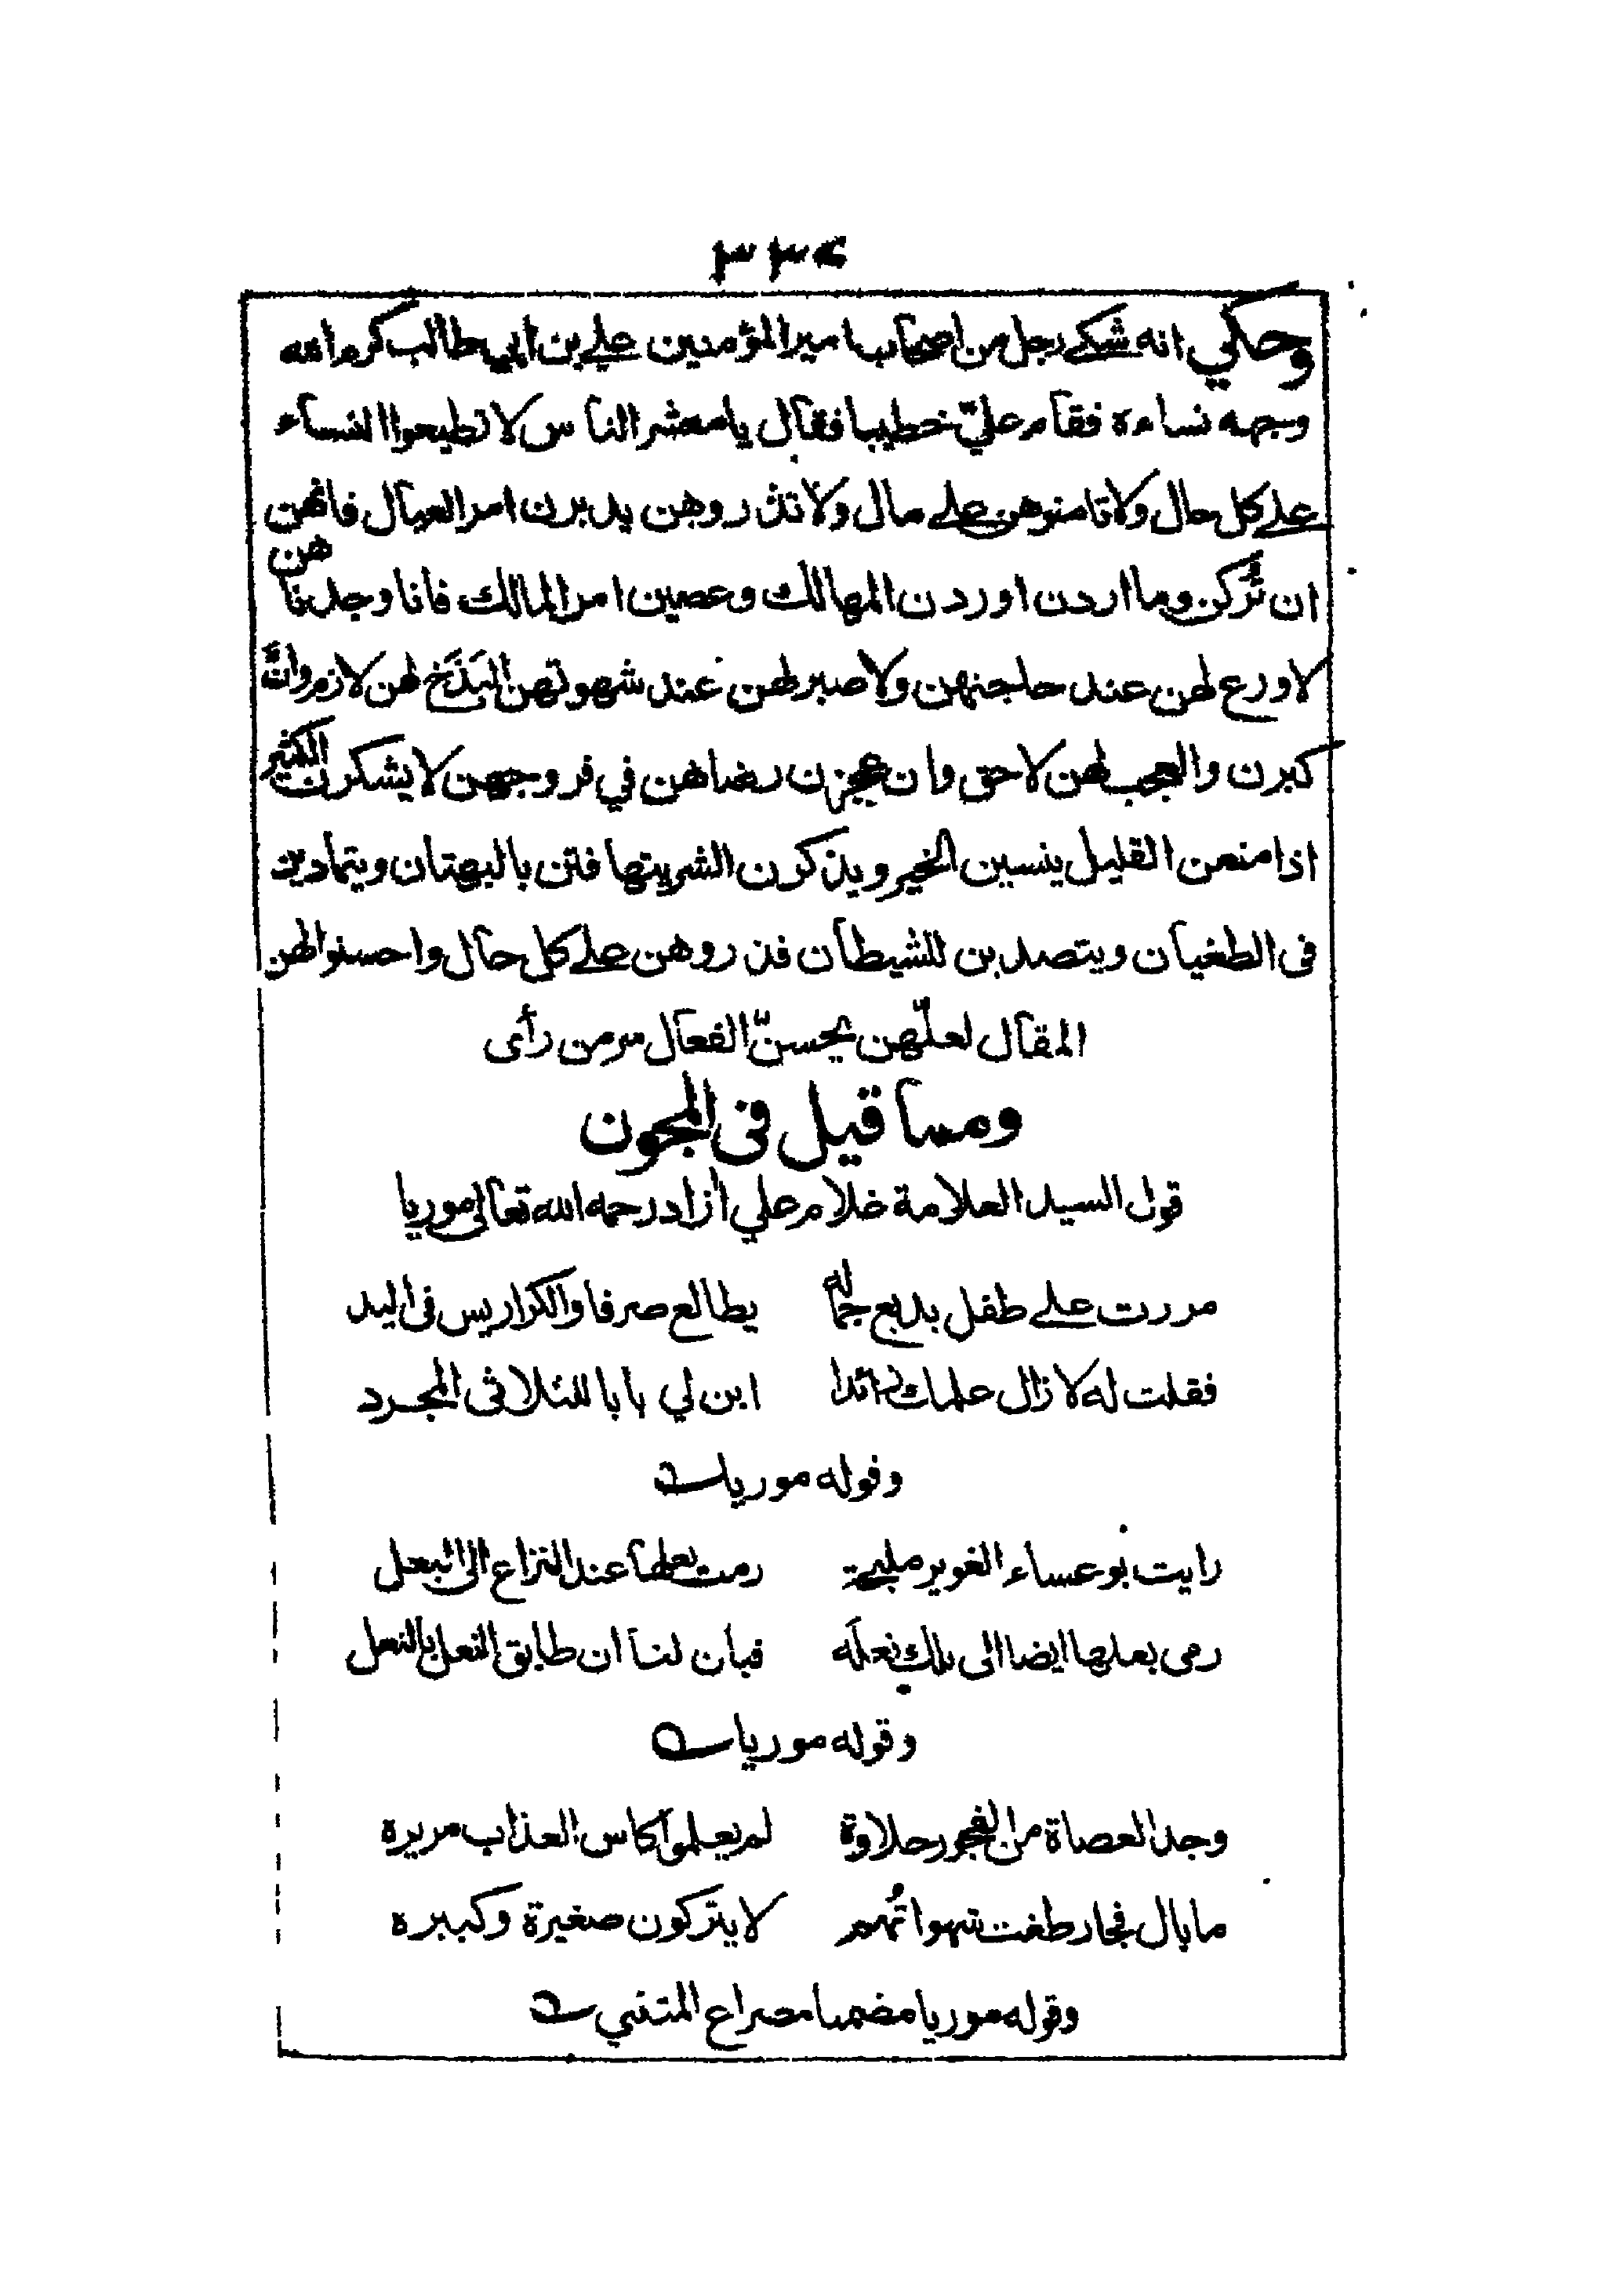 ٣٣٤
وحكي انه شكے رجل من اصحاب امير المؤمنين علے بن ابي طالب كرم الله
وجهه نساءه فقام عليّ خطيبا فقال يا معشر الناس لا تطيعوا النساء
علے كل حال ولا تامنوهن علے مال ولا تذروهن يدبرن امر العيال فانهن
ان تُركن وما اردن اوردن المهالك وعصين امر المالك فانا وجدناهن
لا ورع لهن عند حاجتهن ولا صبر لهن عند شهوتهن البَذَخ لهن لازم وان
كبرن والعجب لهن لاحق وان عجزن رضاهن في فروجهن لا يشكرن الكثير
اذا منعن القليل ينسين الخير ويذكرن الشر يتهافتن بالبهتان ويتمادين
فى الطغيان ويتصدين للشيطان فذروهن علے كل حال واحسنوا لهن
المقال لعلّهن يحسنّ الفعال سر من رأى
ومما قيل فى المجون
قول السيد العلامة غلام علي آزاد رحمه الله تعالى موريا
مررت علے طفل بديع جماله يطالع صرفا والكراريس فى اليد
فقلت له لا زال علمك زائدا ابن لي بابا للثلاثى المجرد
وقوله موريا
رايت بوعساء الغوير مليحة رمت بعلها عند النزاع الى البعل
رمى بعلها ايضا الى تلك نعله فبان لنا ان طابق النعل بالنعل
وقوله موريا
وجد العصاة من الفجور حلاوة لم يعلموا كاس العذاب مريره
ما بال فجار طغت شهواتُهم لا يتركون صغيرة وكبيره
وقوله موريا مضمنا مصراع المتنبي